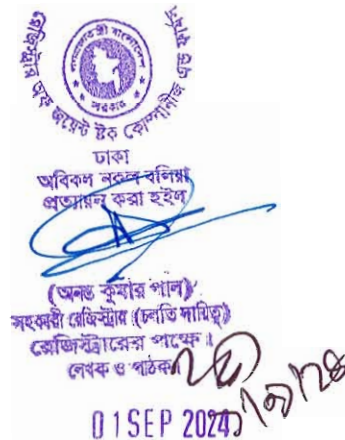 রেজিস্ট্রার অফ জয়েন্ট ষ্টক কোম্পানীজ এন্ড ফার্মস
গণপ্রজাতন্ত্রী বাংলাদেশ
সরকার
ঢাকা
অবিকল নকল বলিয়া
প্রত্যায়ন করা হইল
(অনন্ত কুমার পাল)
সহকারী রেজিস্ট্রার (চলতি দায়িত্ব)
রেজিস্ট্রারের পক্ষে।
লেখক ও পাঠক
01 SEP 2024